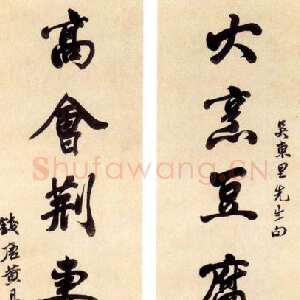 吳東里先生句
大烹豆腐
高會荊妻
錢唐黃
Shufawang.CN